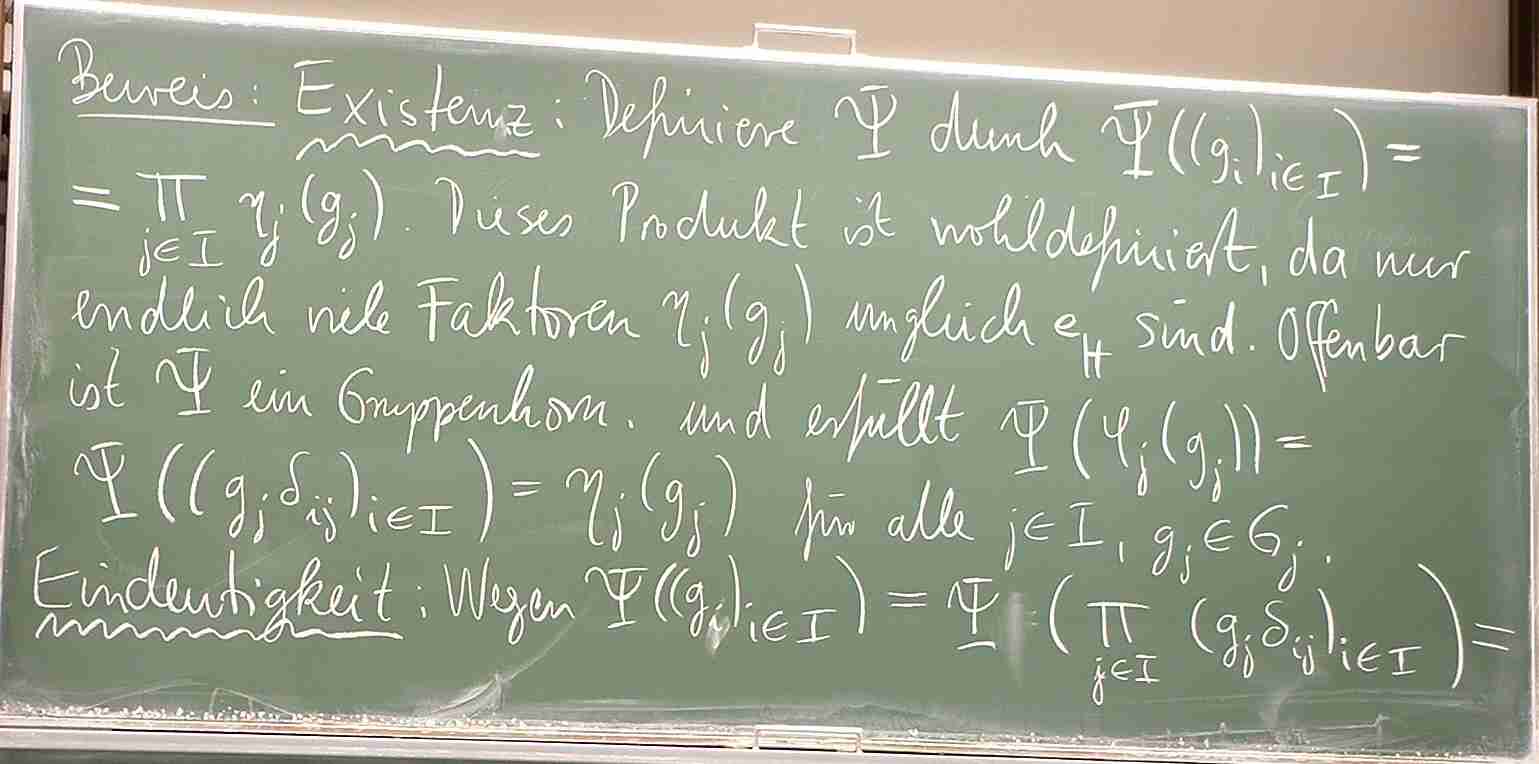 Beweis: Existenz: Definiere Ψ durch Ψ((g_i)_{i∈I}) =
= ∏_{j∈I} η_j(g_j). Dieses Produkt ist wohldefiniert, da nur
endlich viele Faktoren η_j(g_j) ungleich e_H sind. Offenbar
ist Ψ ein Gruppenhom. und erfüllt Ψ(φ_j(g_j)) =
Ψ((g_j δ_{ij})_{i∈I}) = η_j(g_j) für alle j∈I, g_j∈G_j.
Eindeutigkeit: Wegen Ψ((g_i)_{i∈I}) = Ψ(∏_{j∈I} (g_j δ_{ij})_{i∈I}) =